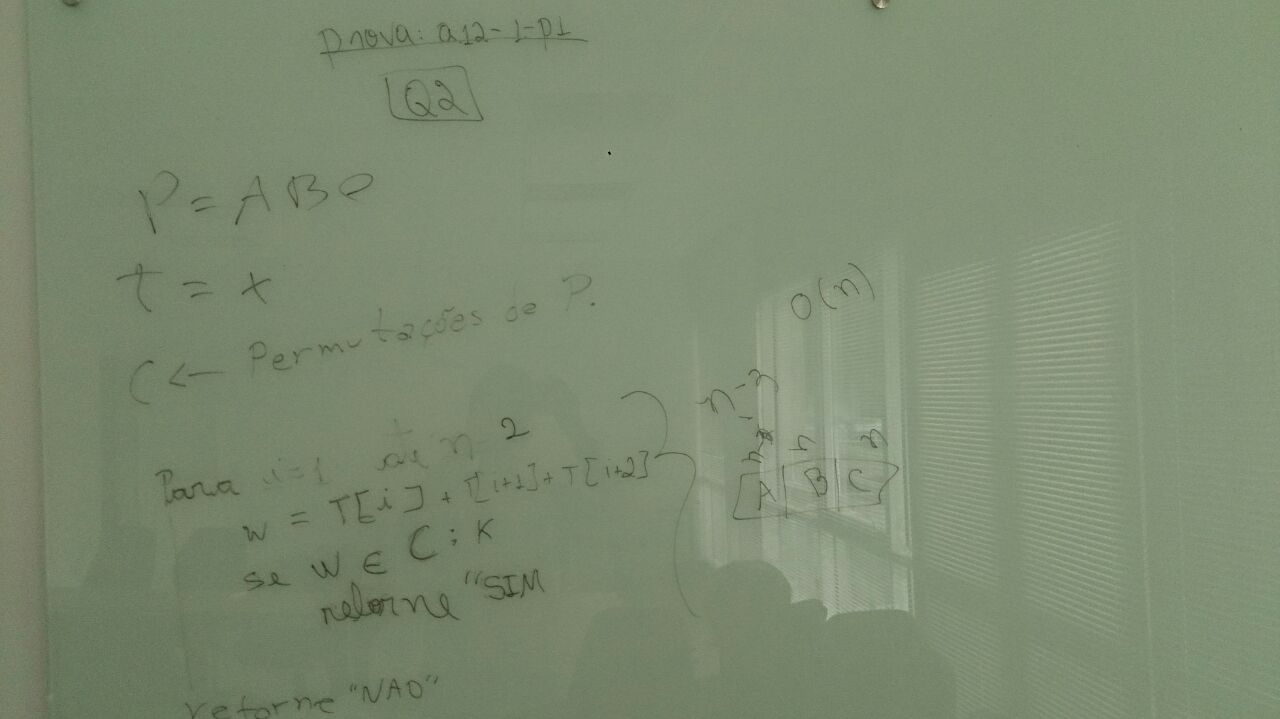 prova: a12-1-p1
Q2
P = A B C
t = x
C <— Permutações de P.
Para i=1 até n-2
w = T[i] + T[i+1] + T[i+2]
se W ∈ C : K
retorne "SIM
retorne "NAO"
O(n)
n-2
n-2 n n
A B C